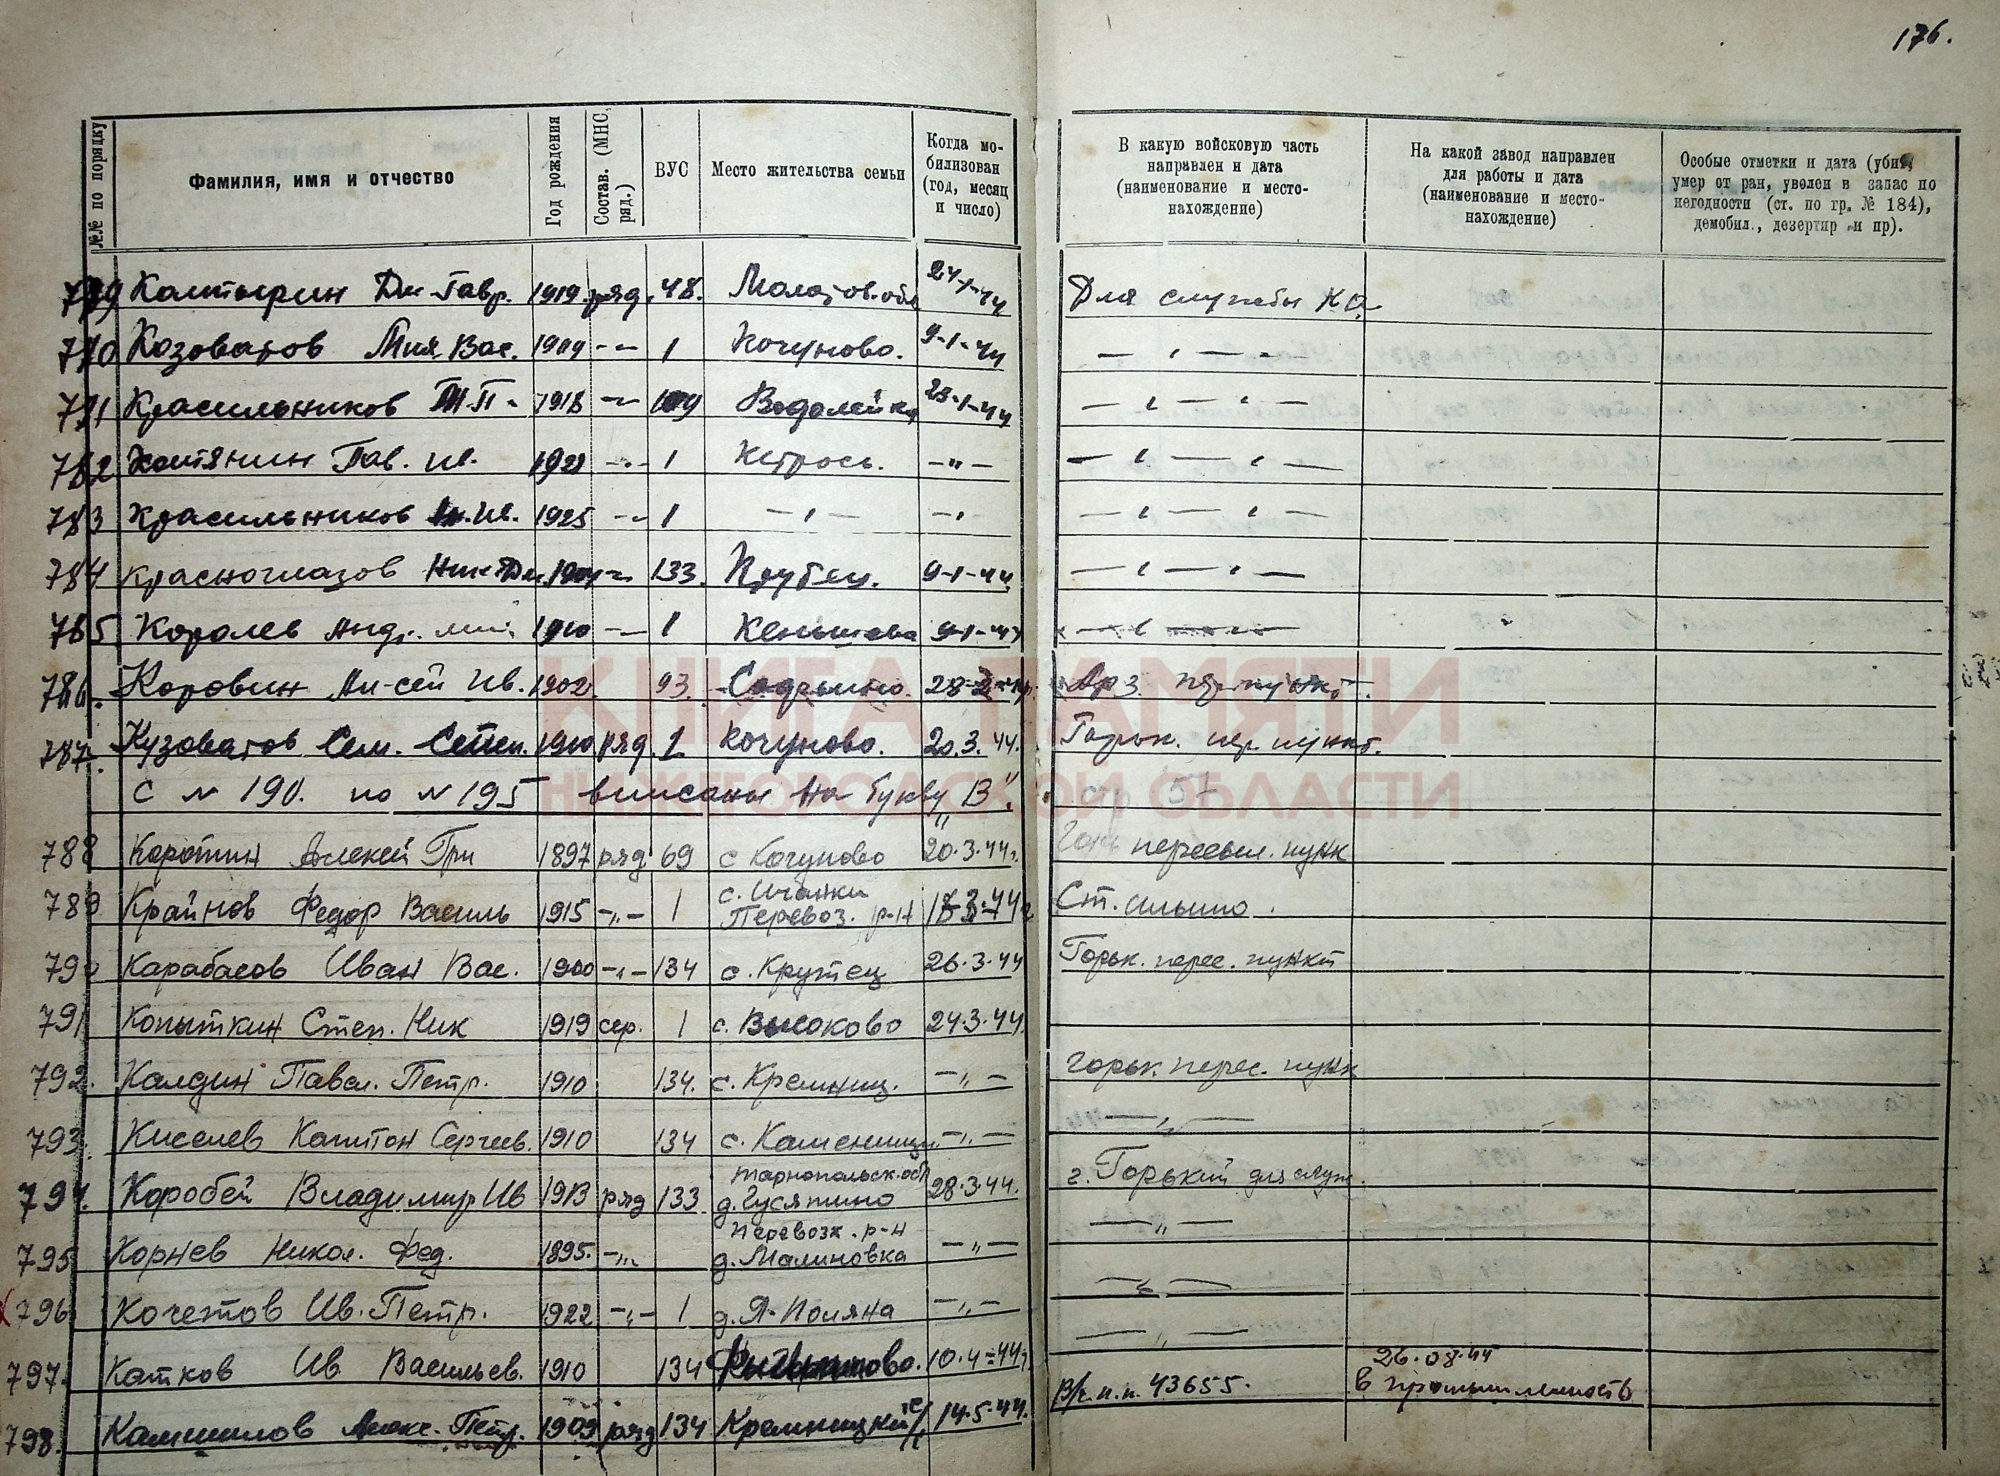 176.
№№ по порядку
Фамилия, имя и отчество
Год рождения
Состав. (МНС, ряд.)
ВУС
Место жительства семьи
Когда мо-
билизован
(год, месяц
и число)
В какую войсковую часть
направлен и дата
(наименование и место-
нахождение)
На какой завод направлен
для работы и дата
(наименование и место-
нахождение)
Особые отметки и дата (убит,
умер от ран, уволен в запас по
негодности (ст. по гр. № 184),
демобил., дезертир и пр).
Гавр. 1919 ряд. 48. Молотов. обл 24-1-44 Для службы КА
Козоватов Вас. 1909 -"- 1 Кочуново. 9-1-44 - " - " -
Красильников 1918 -"- Водолейка 23-1-44 - " - " -
782 Пав. Ив. -"- 1 -"- - " - " -
783 Красильников Ив. 1925 -"- 1 -"- -"- - " - " -
784 Красноглазов Дм. 133. 9-1-44 - " - " -
785 Королев Андр. 1910 -"- 1 Кенышева 9-1-44 - " - " -
786. Коровин Ал-сей Ив. 1902 93. Арз. пер. пункт.
787. Кузоватов Сем. Степ. 1910 ряд. 1 Кочуново. 20.3.44. Горьк. пер. пункт.
С № 190. по № 195 вписаны на букву "В". стр 57
788 Коротин Алексей Гри 1897 ряд 69 с Кочуново 20.3.44г. пересыл. пунк
789 Крайнов Федор Василь 1915 -"- 1 с. Ичалки
Перевоз. р-н Ст.
790 Карабасов Иван Вас. 1900 -"- 134 с. Крутец 26.3.44 Горьк. перес. пункт
791 Копыткин Степ. Ник 1919 сер. 1 с. Высоково 24.3.44.
792. Калдин Павл. Петр. 1910 134. с. Кремниц. -"- Горьк. перес. пунк
793. Киселев Капитон Сергеев. 1910 134 с. Каменищи -"- -"-
794. Коробей Владимир Ив 1913 ряд 133 Тарнопольск. обл
д. Гусятино 28.3.44. г. Горький для служ.
795 Корнев Никол. Фед. 1895. -"- Перевозк. р-н
д. Малиновка -"- -"-
796 Кочетов Ив. Петр. 1922 -"- 1 д. Я-Поляна -"- -"-
797. Катков Ив Васильев. 1910 134 10.4-44г. -"-
798. Камшилов Алекс. Петр. 1909 ряд 134 Кремницкий с/с 14.5.44. В/ч. п.п. 43655. 26.08.44
в промышленность
КНИГА ПАМЯТИ
НИЖЕГОРОДСКОЙ ОБЛАСТИ